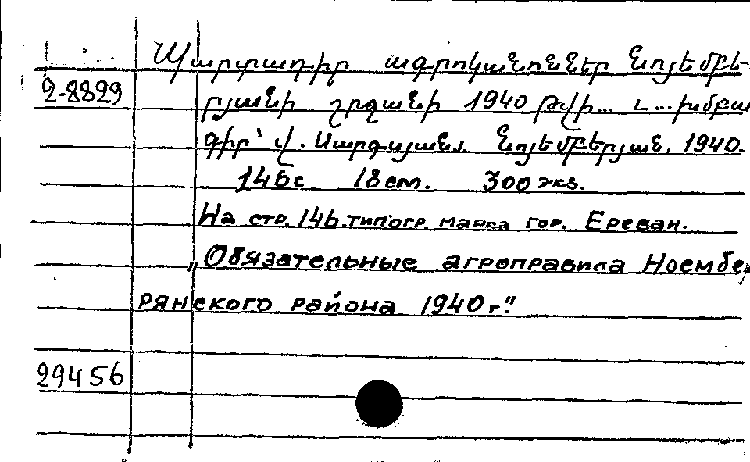 Պարտադիր ագրոկանոններ Նոյեմբե-
2-8829
րյանի շրջանի 1940 թվի... և ... խմբա
գիր՝ վ. Սարգսյան. Նոյեմբերյան, 1940.
146с 18em. 300 экз.
На стр. 146. типогр. марка гор. Ереван.
„Обязательные агроправила Ноембе
рянского района 1940 г."
29456